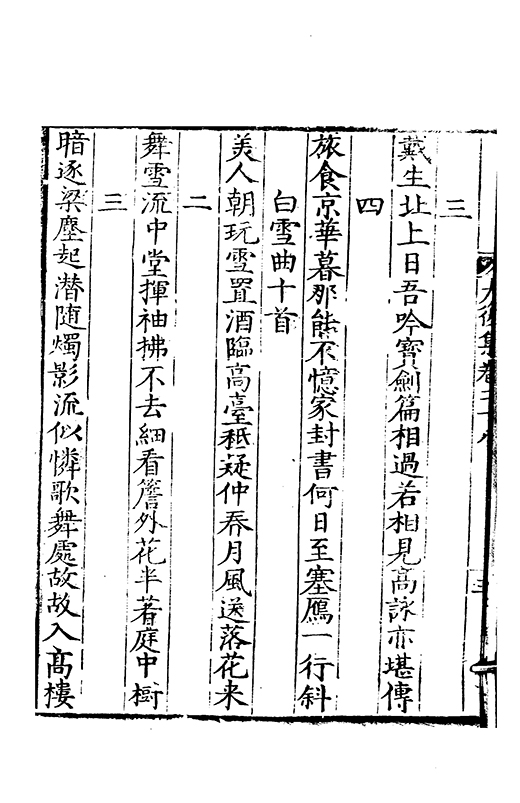 三
戴生北上日吾吟寳劍篇相過若相見高詠亦堪傳
四
旅食京華暮那能不憶家封書何日至塞鴈一行斜
白雪曲十首
美人朝玩雪置酒臨高臺秪疑仲春月風送落花来
二
舞雪流中堂揮袖拂不去細看簷外花半著庭中樹
三
暗逐梁塵起潜随燭影流似憐歌舞處故故入髙樓